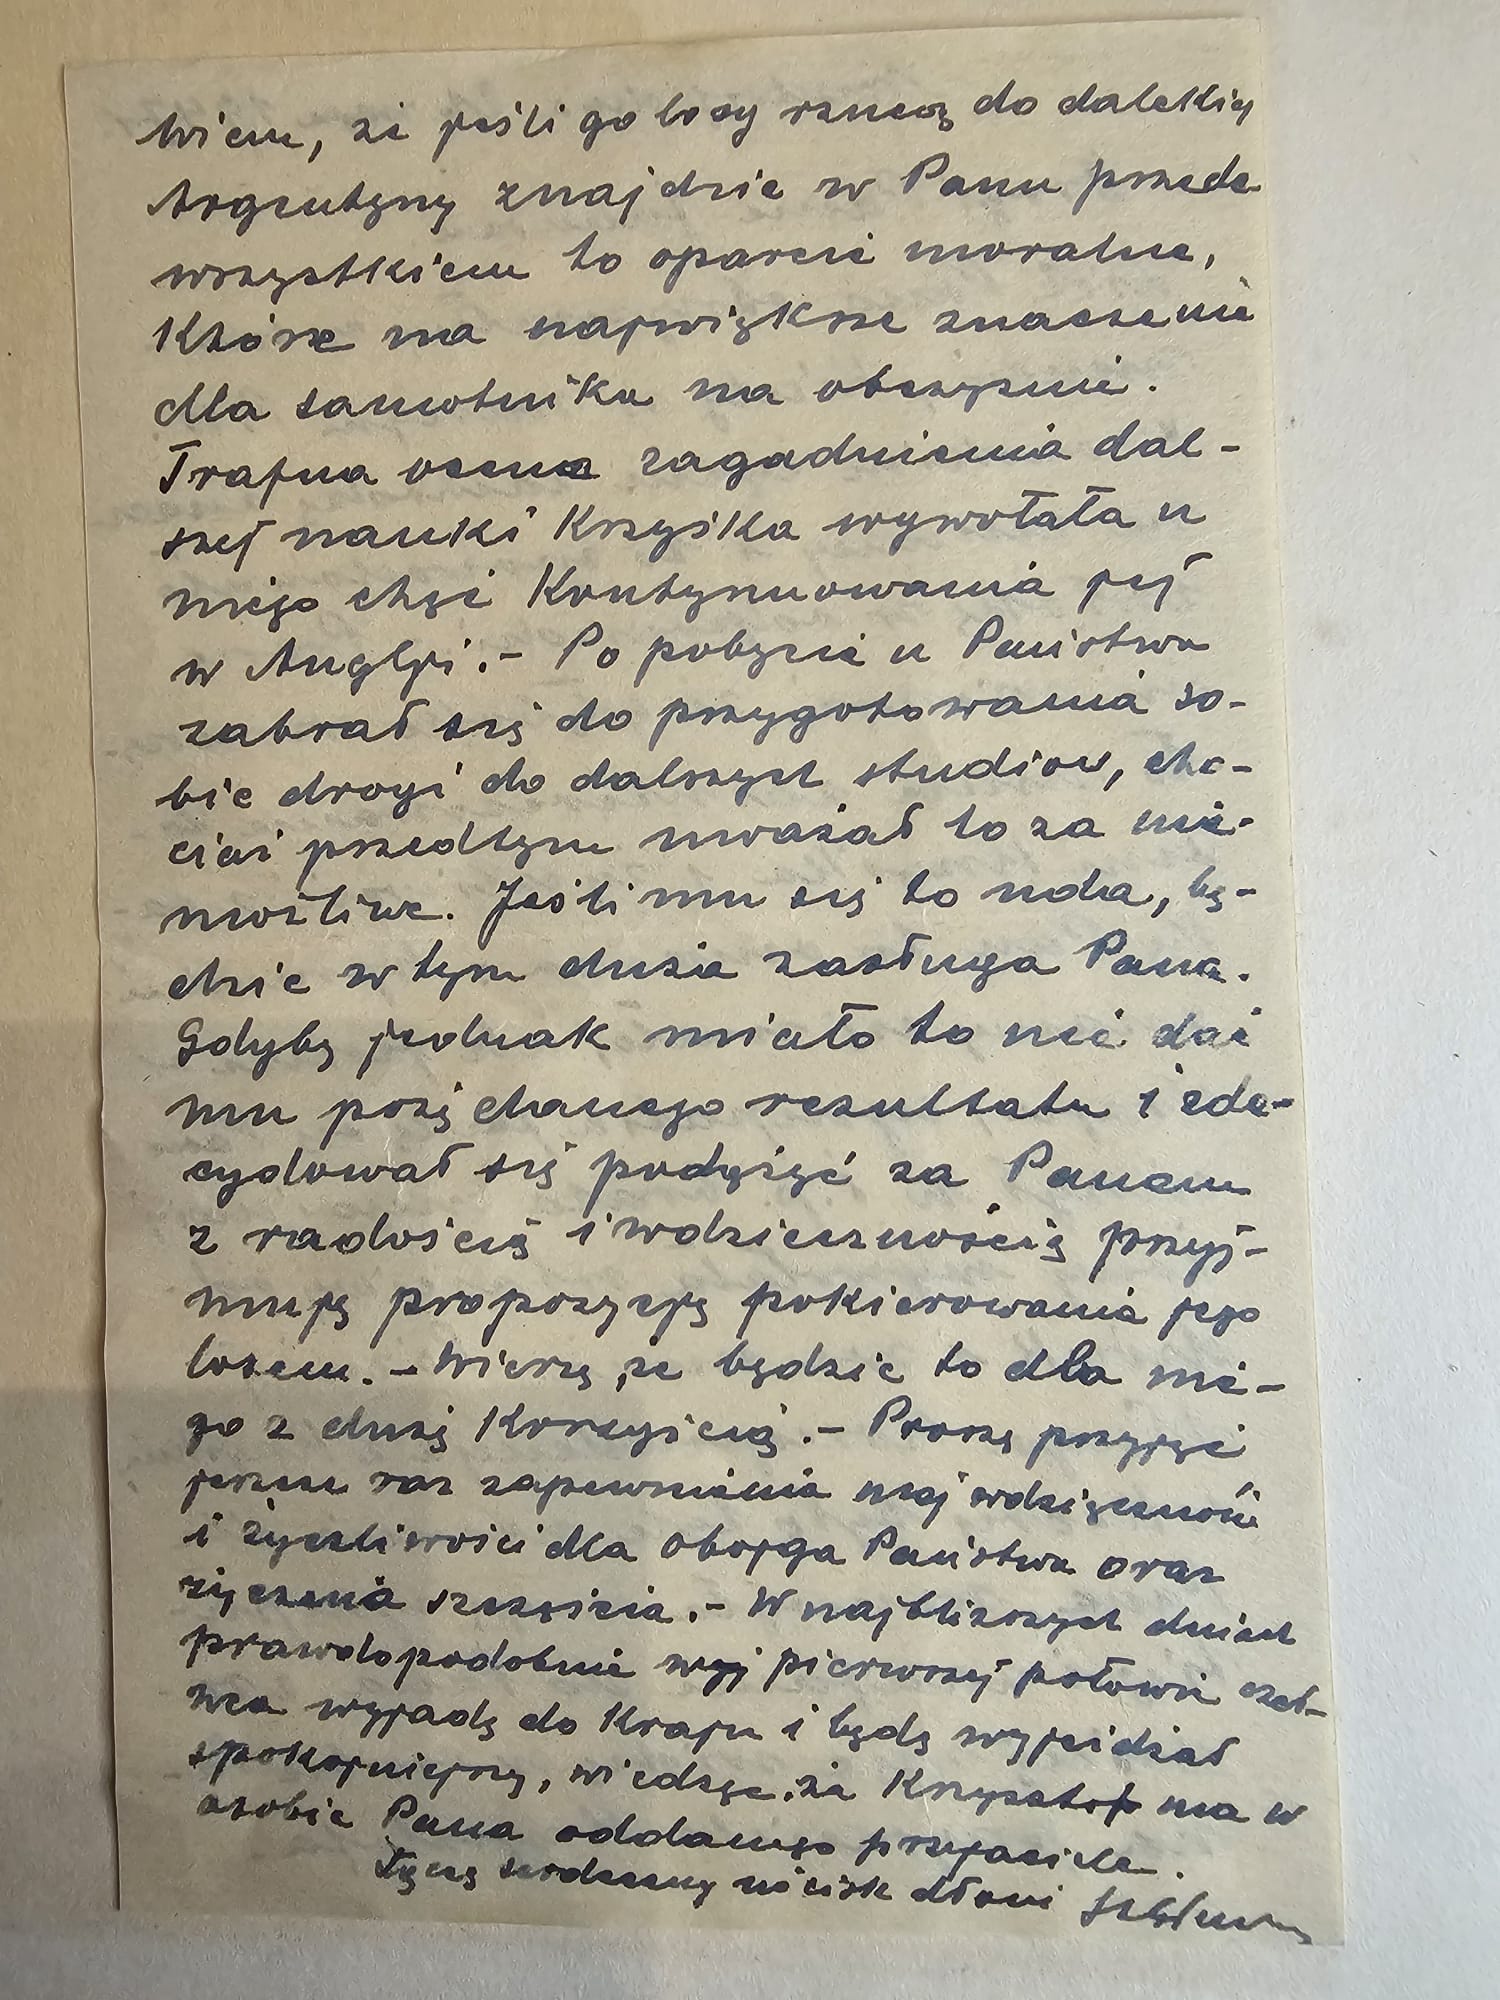 Wiem, że jeśli go losy rzucą do dalekiej
Argentyny znajdzie w Panu przede
wszystkiem to oparcie moralne,
które ma największe znaczenie
dla samotnika na obczyźnie.
Trafna ocena zagadnienia dal-
szej nauki Krzyśka wywołała u
niego chęć kontynuowania jej
w Anglji.- Po pobycie u Państwa
zabrał się do przygotowania so-
bie drogi do dalszych studiow, cho-
ciaż przedtym uważał to za nie-
możliwe. Jeśli mu się to uda, bę-
dzie w tym duża zasługa Pana.
Gdyby jednak miało to nie dać
mu pożądanego rezultatu i zde-
cydował się podążyć za Panem
z radością i wdziecznością przyj-
muję propozycję pokierowania jego
losem.- Wierzę, że będzie to dla nie-
go z dużą korzyścią.- Proszę przyjąć
jeszcze raz zapewnienia mej wdzięczności
i życzliwości dla obojga Państwa oraz
życzenia szczęścia.- W najbliższych dniach
prawdopodobnie w pierwszej połowie czer-
wca wyjadę do Kraju i będę wyjeżdżał
spokojniejszy, wiedząc, że Krzysztof ma w
osobie Pana oddanego przyjaciela.
Łączę serdeczny uścisk dłoni